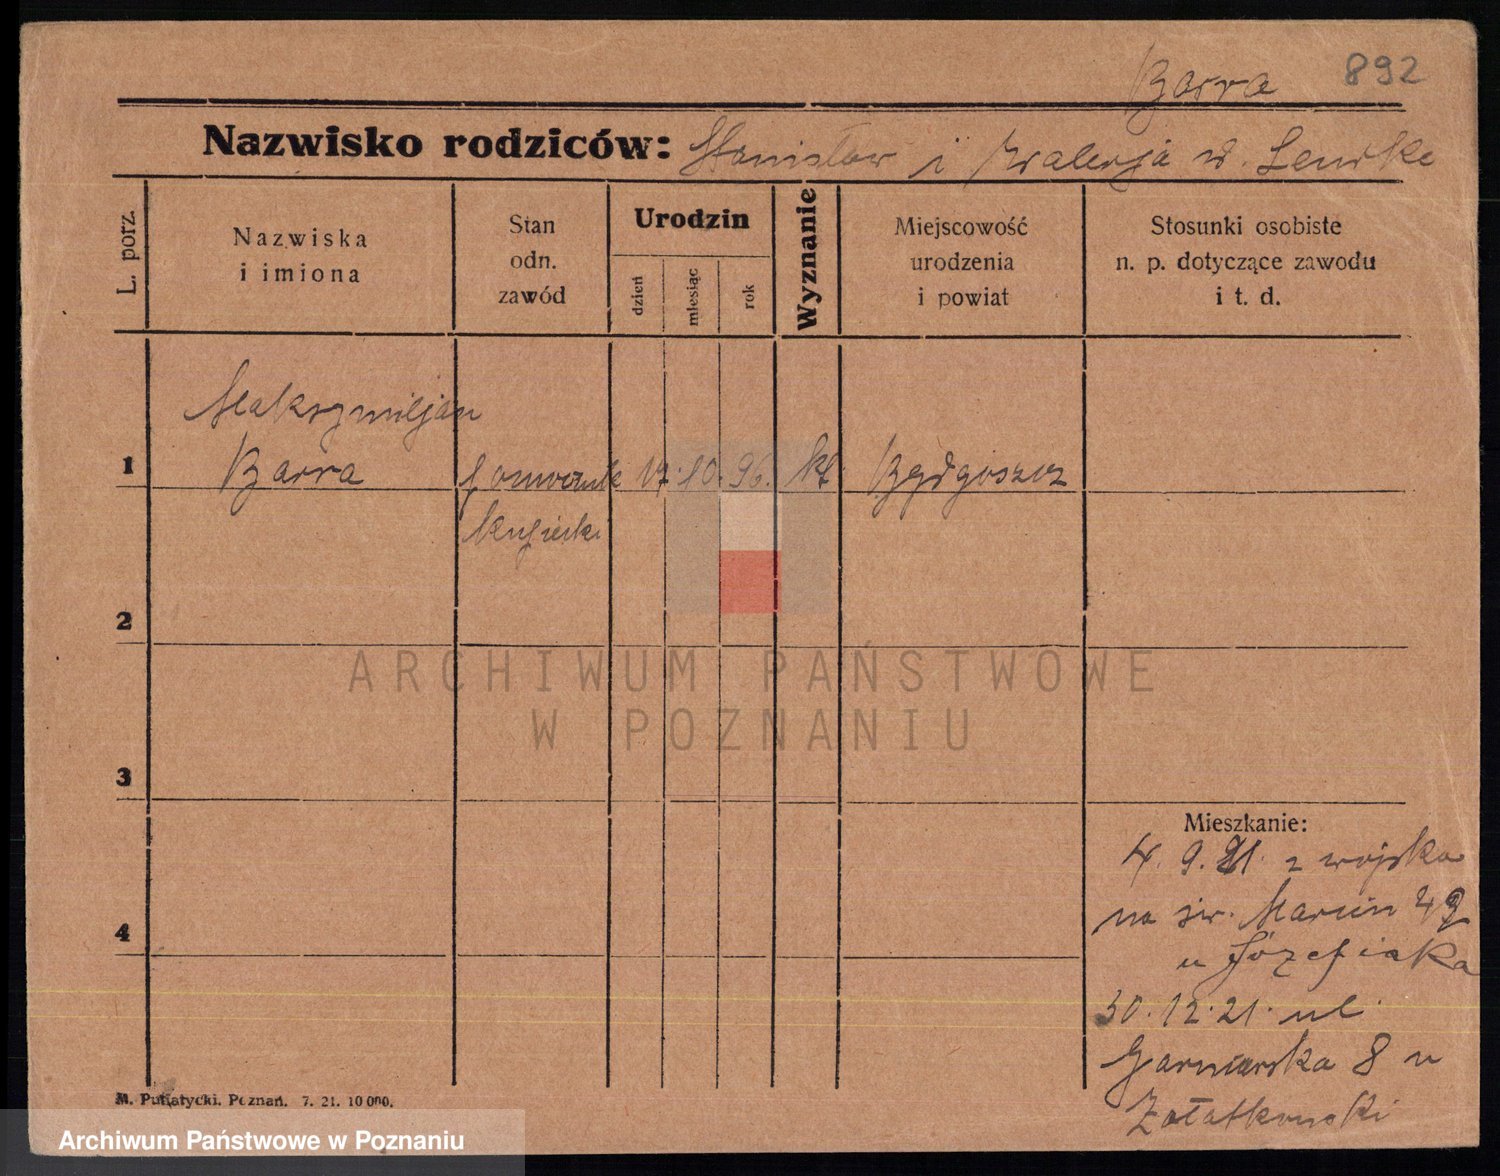 Barra 892
Nazwisko rodziców: Stanisław i Walerja d. Lemke
L. porz.
Nazwiska
i imiona
Stan
odn.
zawód
Urodzin
dzień
miesiąc
rok
Wyznanie
Miejscowość
urodzenia
i powiat
Stosunki osobiste
n. p. dotyczące zawodu
i t. d.
Maksymiljan
1 Barra 17. 10. 96. kt. Bydgoszcz
2
3
4
Mieszkanie:
4. 9. 21. z wojska
na św. Marcin
u Józefiaka
30. 12. 21. ul.
Garncarska 8 u
M. Putiatycki. Poznań. 7. 21. 10 000.
ARCHIWUM PAŃSTWOWE
W POZNANIU
Archiwum Państwowe w Poznaniu